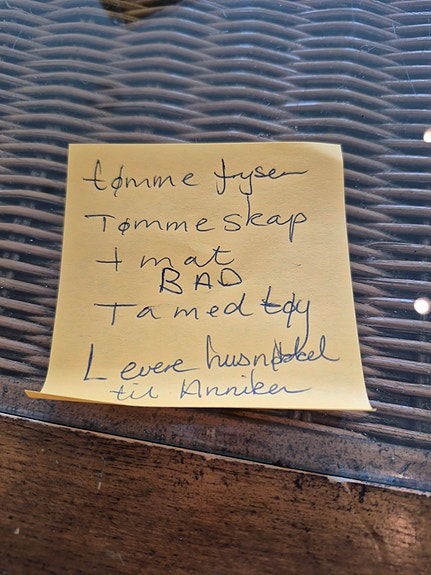 tømme fryser
Tømme skap
+ mat
BAD
Ta med tøy
Levere husnøkkel
til Anniken